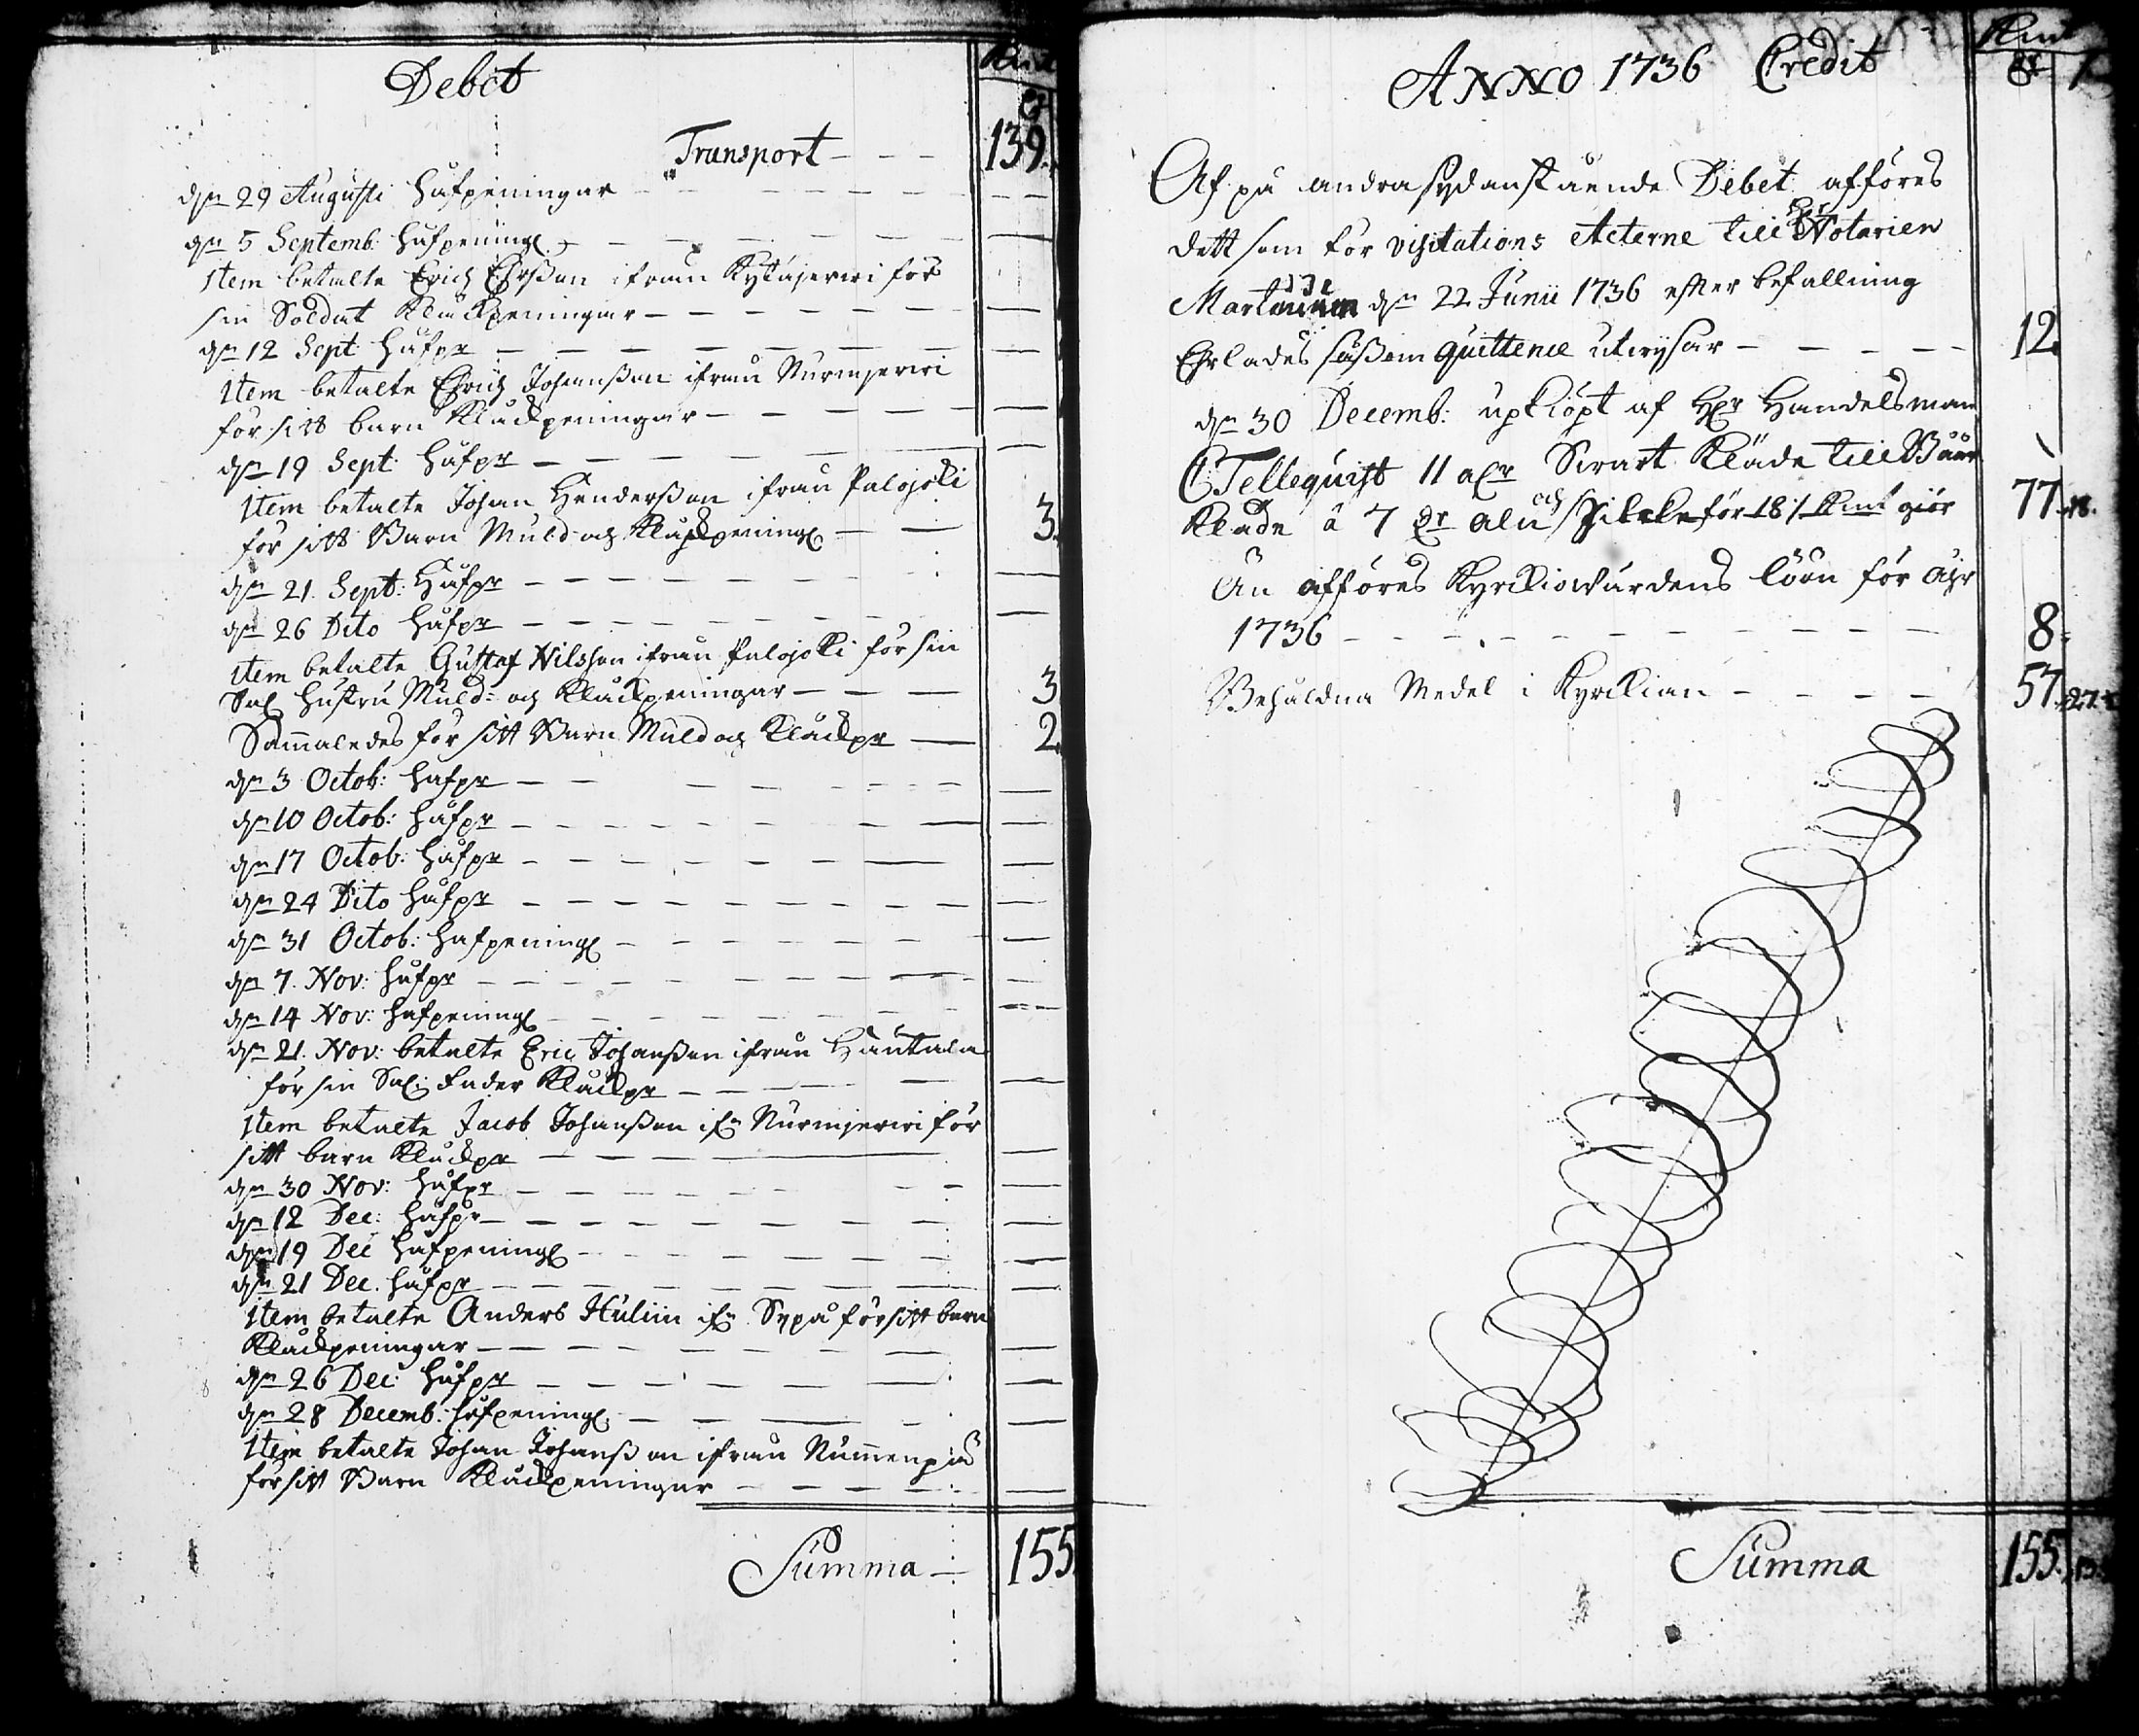 Debet
Kmt
Transport - - - 139.
dn 29 Augusti håfpeningar
dn 5 Septemb: håfpening
Item betalte Erich Ehrsson ifrån Kytäjerwi för
sin Soldat Klåckpeningar
dn 12 Sept håfpr
Item betalte Ehrich Johansson ifrån Nurmjerwi
för sitt barn Klåckpeningar
dn 19 Sept: håfpr
Item betalte Johan Hendersson ifrån Palojoki
för sitt Barn Muld och Klåckpening 3.
dn 21. Sept: Håfpr
dn 26 Dito håfpr
Item betalte Gustaf Nilsson ifrån Palojoki för sin
Sal hustru Muld= och Klåckpeningar 3
Sammaledes för sitt Barn Muld och Klåckpr 2.
dn 3 Octob: håfpr
dn 10 Octob: håfpr
dn 17 Octob: håfpr
dn 24 Dito håfpr
dn 31 Octob: håfpening
dn 7. Nov: håfpr
dn 14 Nov: håfpening
dn 21. Nov: betalte Eric Johansson ifrån Hautala
för sin Sal: Fader Klåckpr
Item betalte Jacob Johansson ifn Nurmjerwi för
sitt barn Klåckpr
dn 30 Nov: håfpr
dn 12 Dec: håfpr
dn 19 Dec håfpening
dn 21 Dec. håfpr
Item betalte Anders Hulin ifn Sepå för sitt barn
Klåckpeningar
dn 26 Dec: håfpr
dn 28 Decemb: håfpening
Item betalte Johan Johansson ifrån Nummenpä
för sitt Barn Klåckpeningar
Summa 155.
ANNO 1736 Credit
Kmt
Af på andra sydan stående Debet afföres
dett som för visitations Acterne till Notarien
dn 22 Junii 1736 efter befallning
Ehrlades såssom quittence utwysar 12.
dn 30 Decemb: upkiöpt af Hr Handelsman
C Tellequist 11 alr Swart Kläde till Båår
Kläde â 7 dr aln och för 18 Kmt giör 77. 18.
Än afföres Kyrkiowärdens löön för åhr
1736 8
Behåldna Medel i Kyrkian 57. 27.
Summa 155.